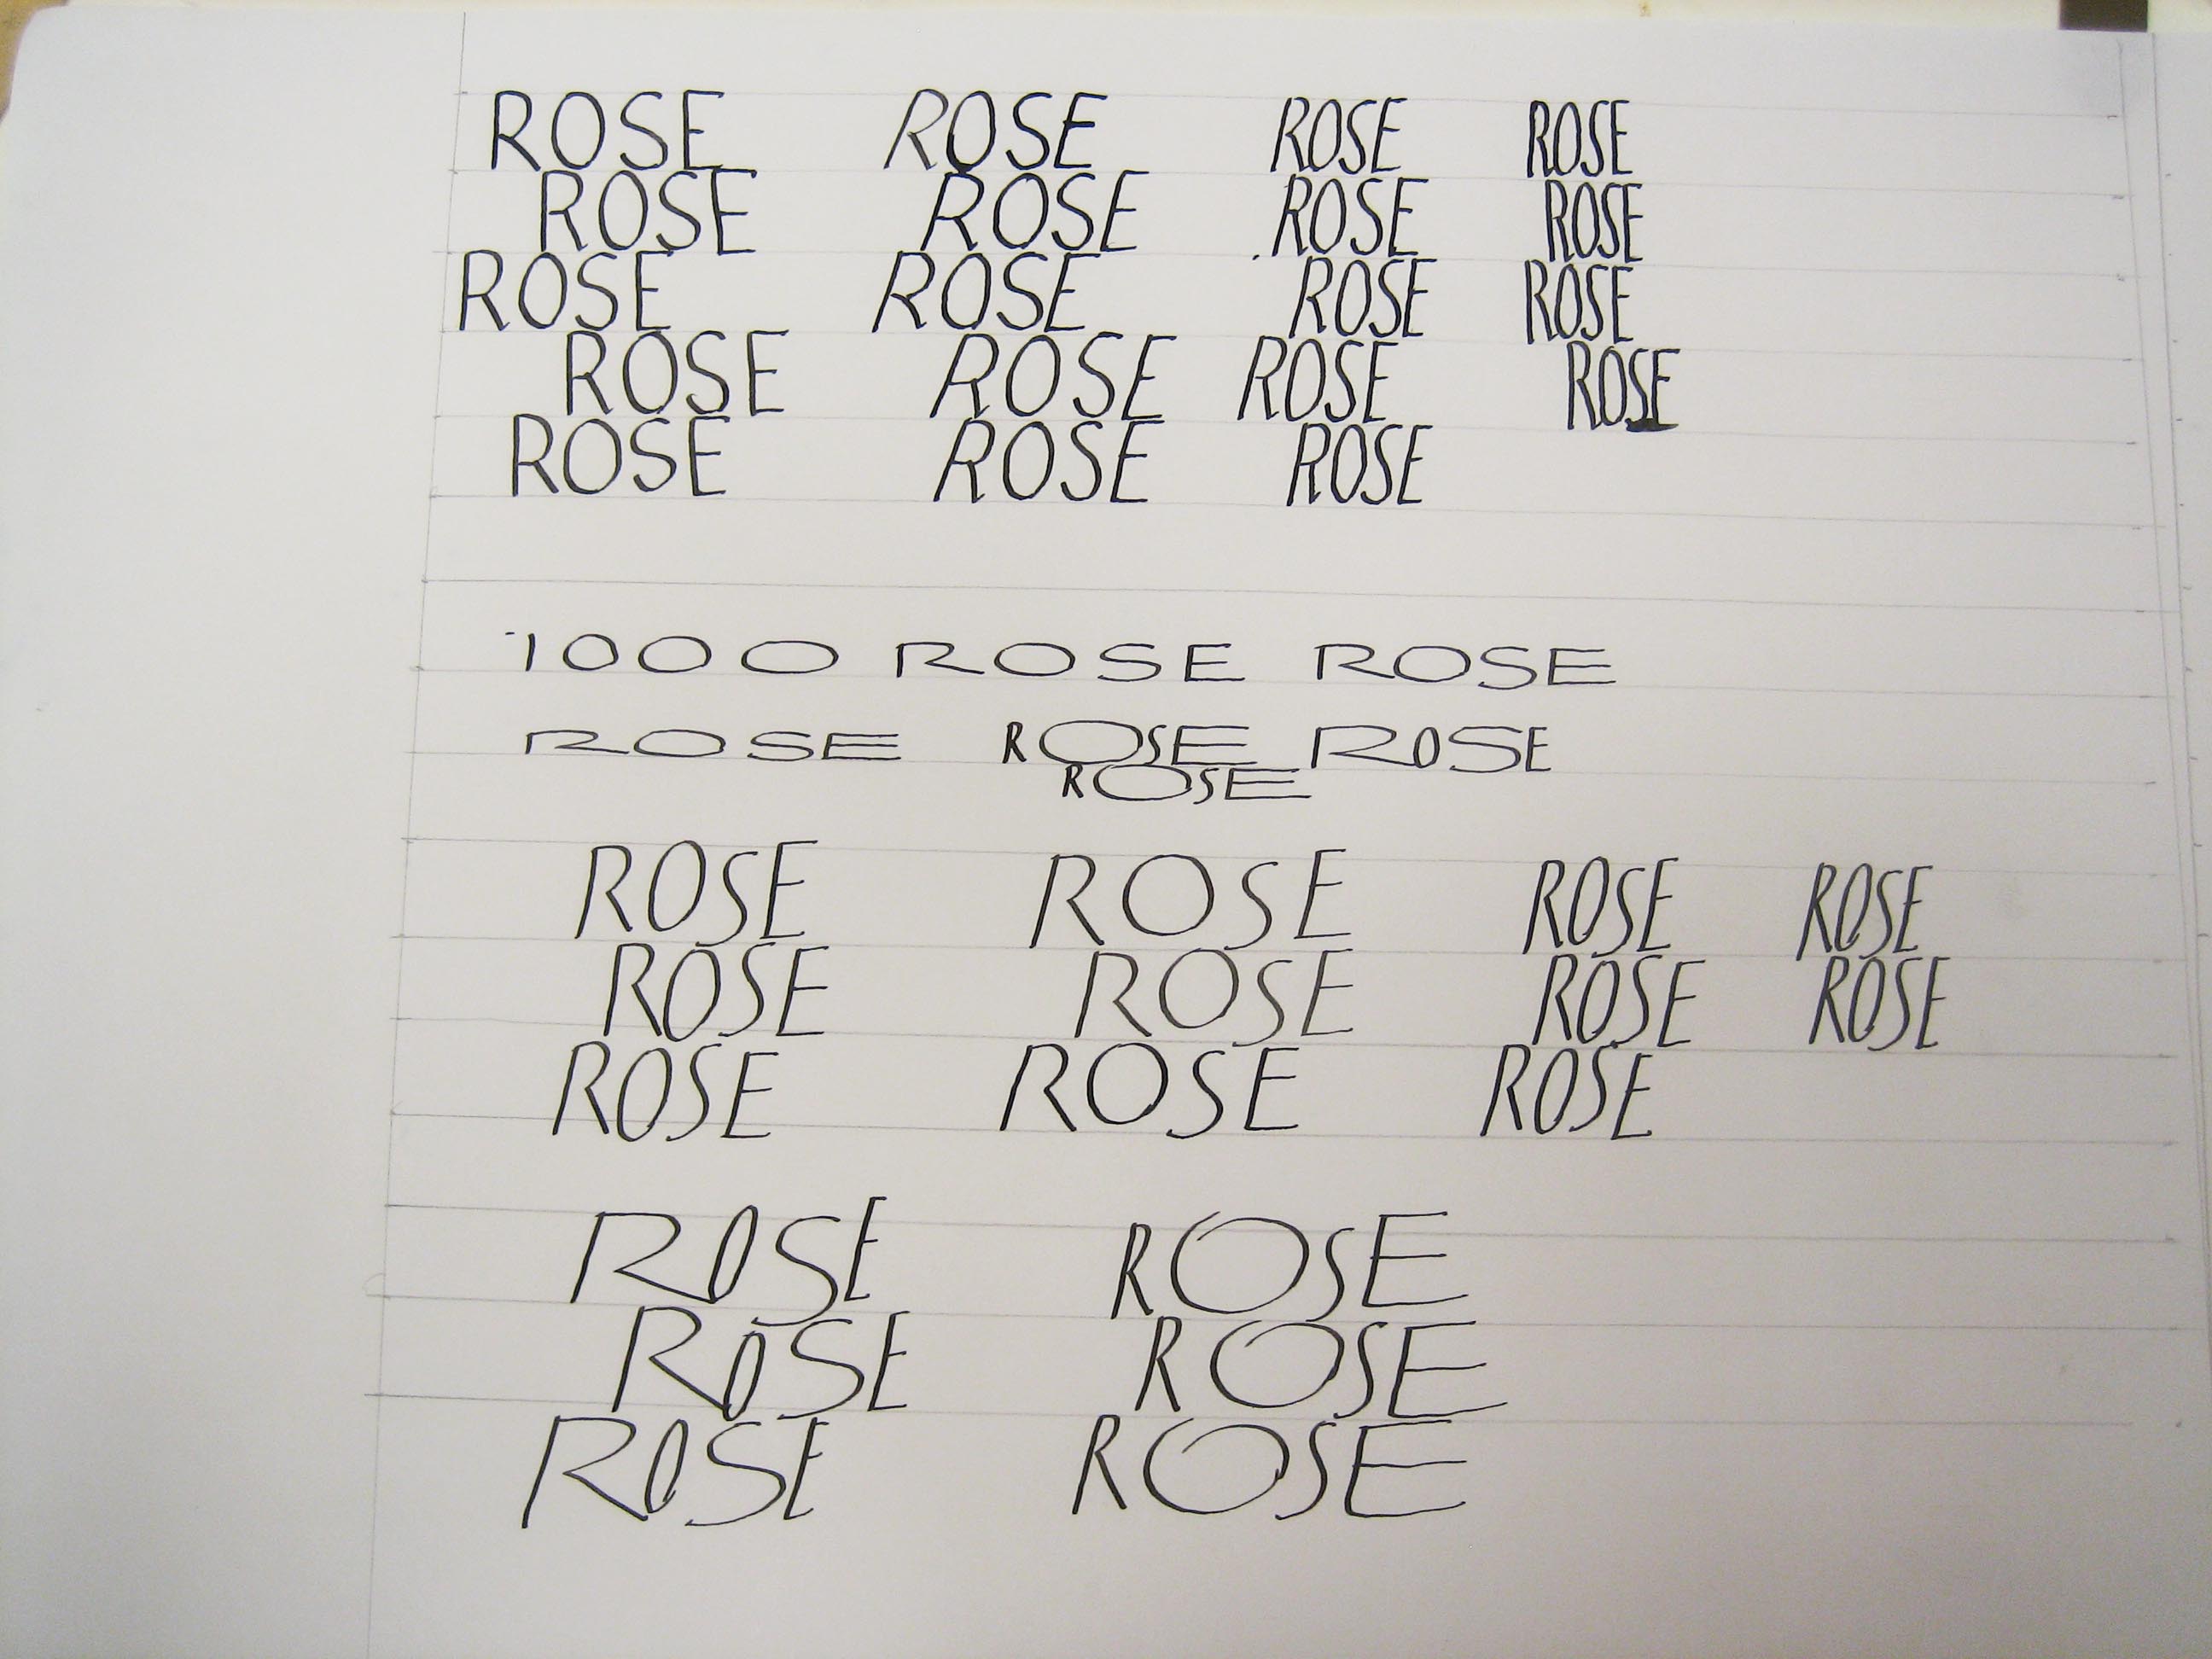 ROSE ROSE ROSE ROSE
ROSE ROSE ROSE ROSE
ROSE ROSE ROSE ROSE
ROSE ROSE ROSE ROSE
ROSE ROSE ROSE
1000 ROSE ROSE
ROSE ROSE ROSE
ROSE
ROSE ROSE ROSE ROSE
ROSE ROSE ROSE ROSE
ROSE ROSE ROSE
ROSE ROSE
ROSE ROSE
ROSE ROSE